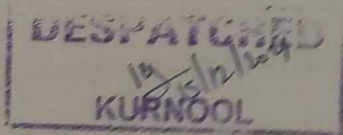 DESPATCHED
15/12/2014
KURNOOL